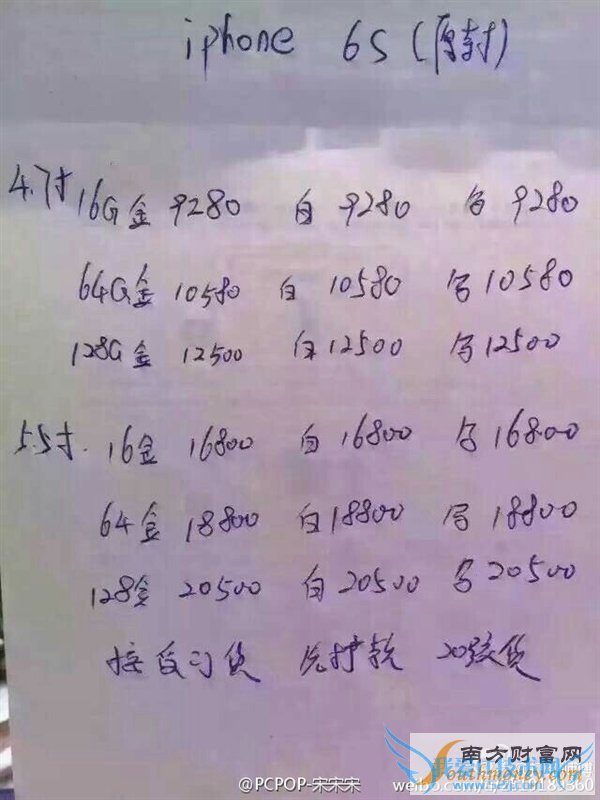 iphone 6S (原封)
4.7寸 16G金 9280 白 9280 9280
64G金 10580 白 10580 10580
128G金 12500 白 12500 12500
5.5寸. 16金 16800 白 16800 16800
64金 18800 白 18800 18800
128金 20500 白 20500 20500
接受订货 先打款 20 货
南方财富网
outhmoney.com
@PCPOP-宋宋宋